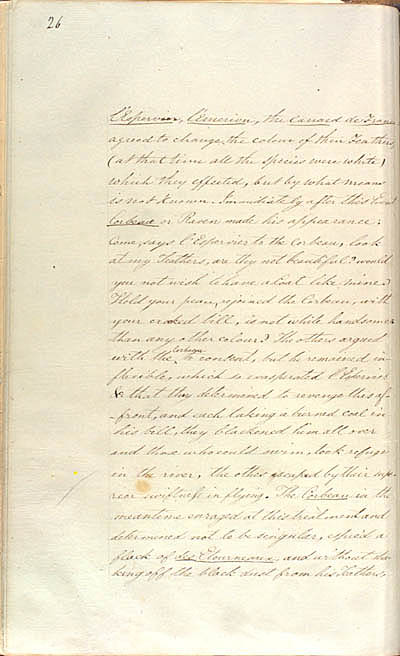 26
L'Espervier, L'Emerion, the Canard de France
agreed to change the colour of their Feathers
(at that time all the species were white)
which they effected, but by what means
is not known. Immediately after this the
Corbeau or Raven made his appearance;
Come, says l'Espervier to the Corbeau, look
at my Feathers, are they not beautiful? would
you not wish to have a Coat like mine?
Hold your peace, rejoined the Corbeau, with
your crooked bill, is not white handsomer
than any other colour? The others argued
with the Corbeau to consent, but he remained in-
flexible, which so exasperated l'Espervier
& that they determined to revenge this af-
-front, and each taking a burned coal in
his bill, they blackened him all over
and those who could swim, took refuge
in the river, the other escaped by their supe-
rior swiftness in flying. The Corbeau in the
meantime enraged at this treatment and
determined not to be singular, espied a
flock of des Etourneaux, and without sha-
king off the black dust from his Feathers,